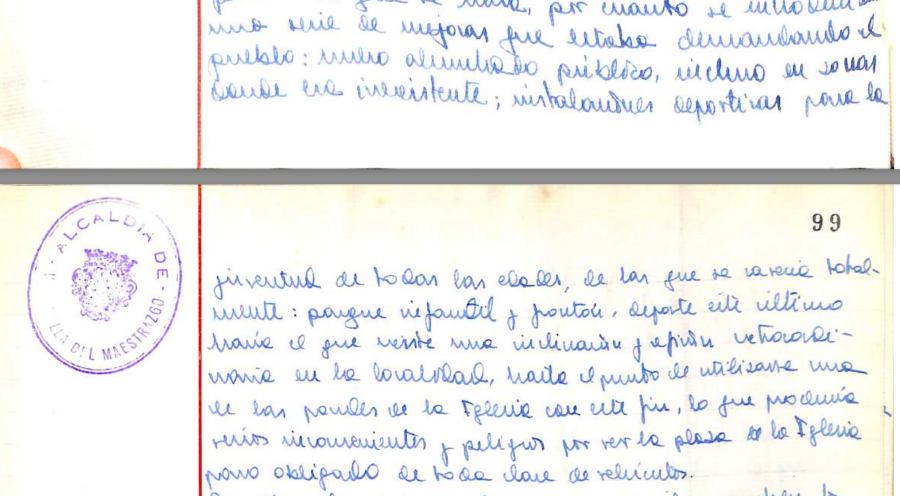 por cuanto se introducían
una serie de mejoras que estaba demandando el
pueblo: nuevo alumbrado público, incluso en zonas
donde era inexistente; instalaciones deportivas para la
ALCALDIA DE
LLA DEL MAESTRAZGO
99
juventud de todas las edades, de las que se carecía total-
mente: parque infantil y frontón, deporte este último
hacia el que existe una inclinación y afición extraordi-
naria en la localidad, hasta el punto de utilizarse una
de las paredes de la Iglesia con este fin, lo que producía
serios inconvenientes y peligros por ser la plaza de la Iglesia
paso obligado de toda clase de vehículos.